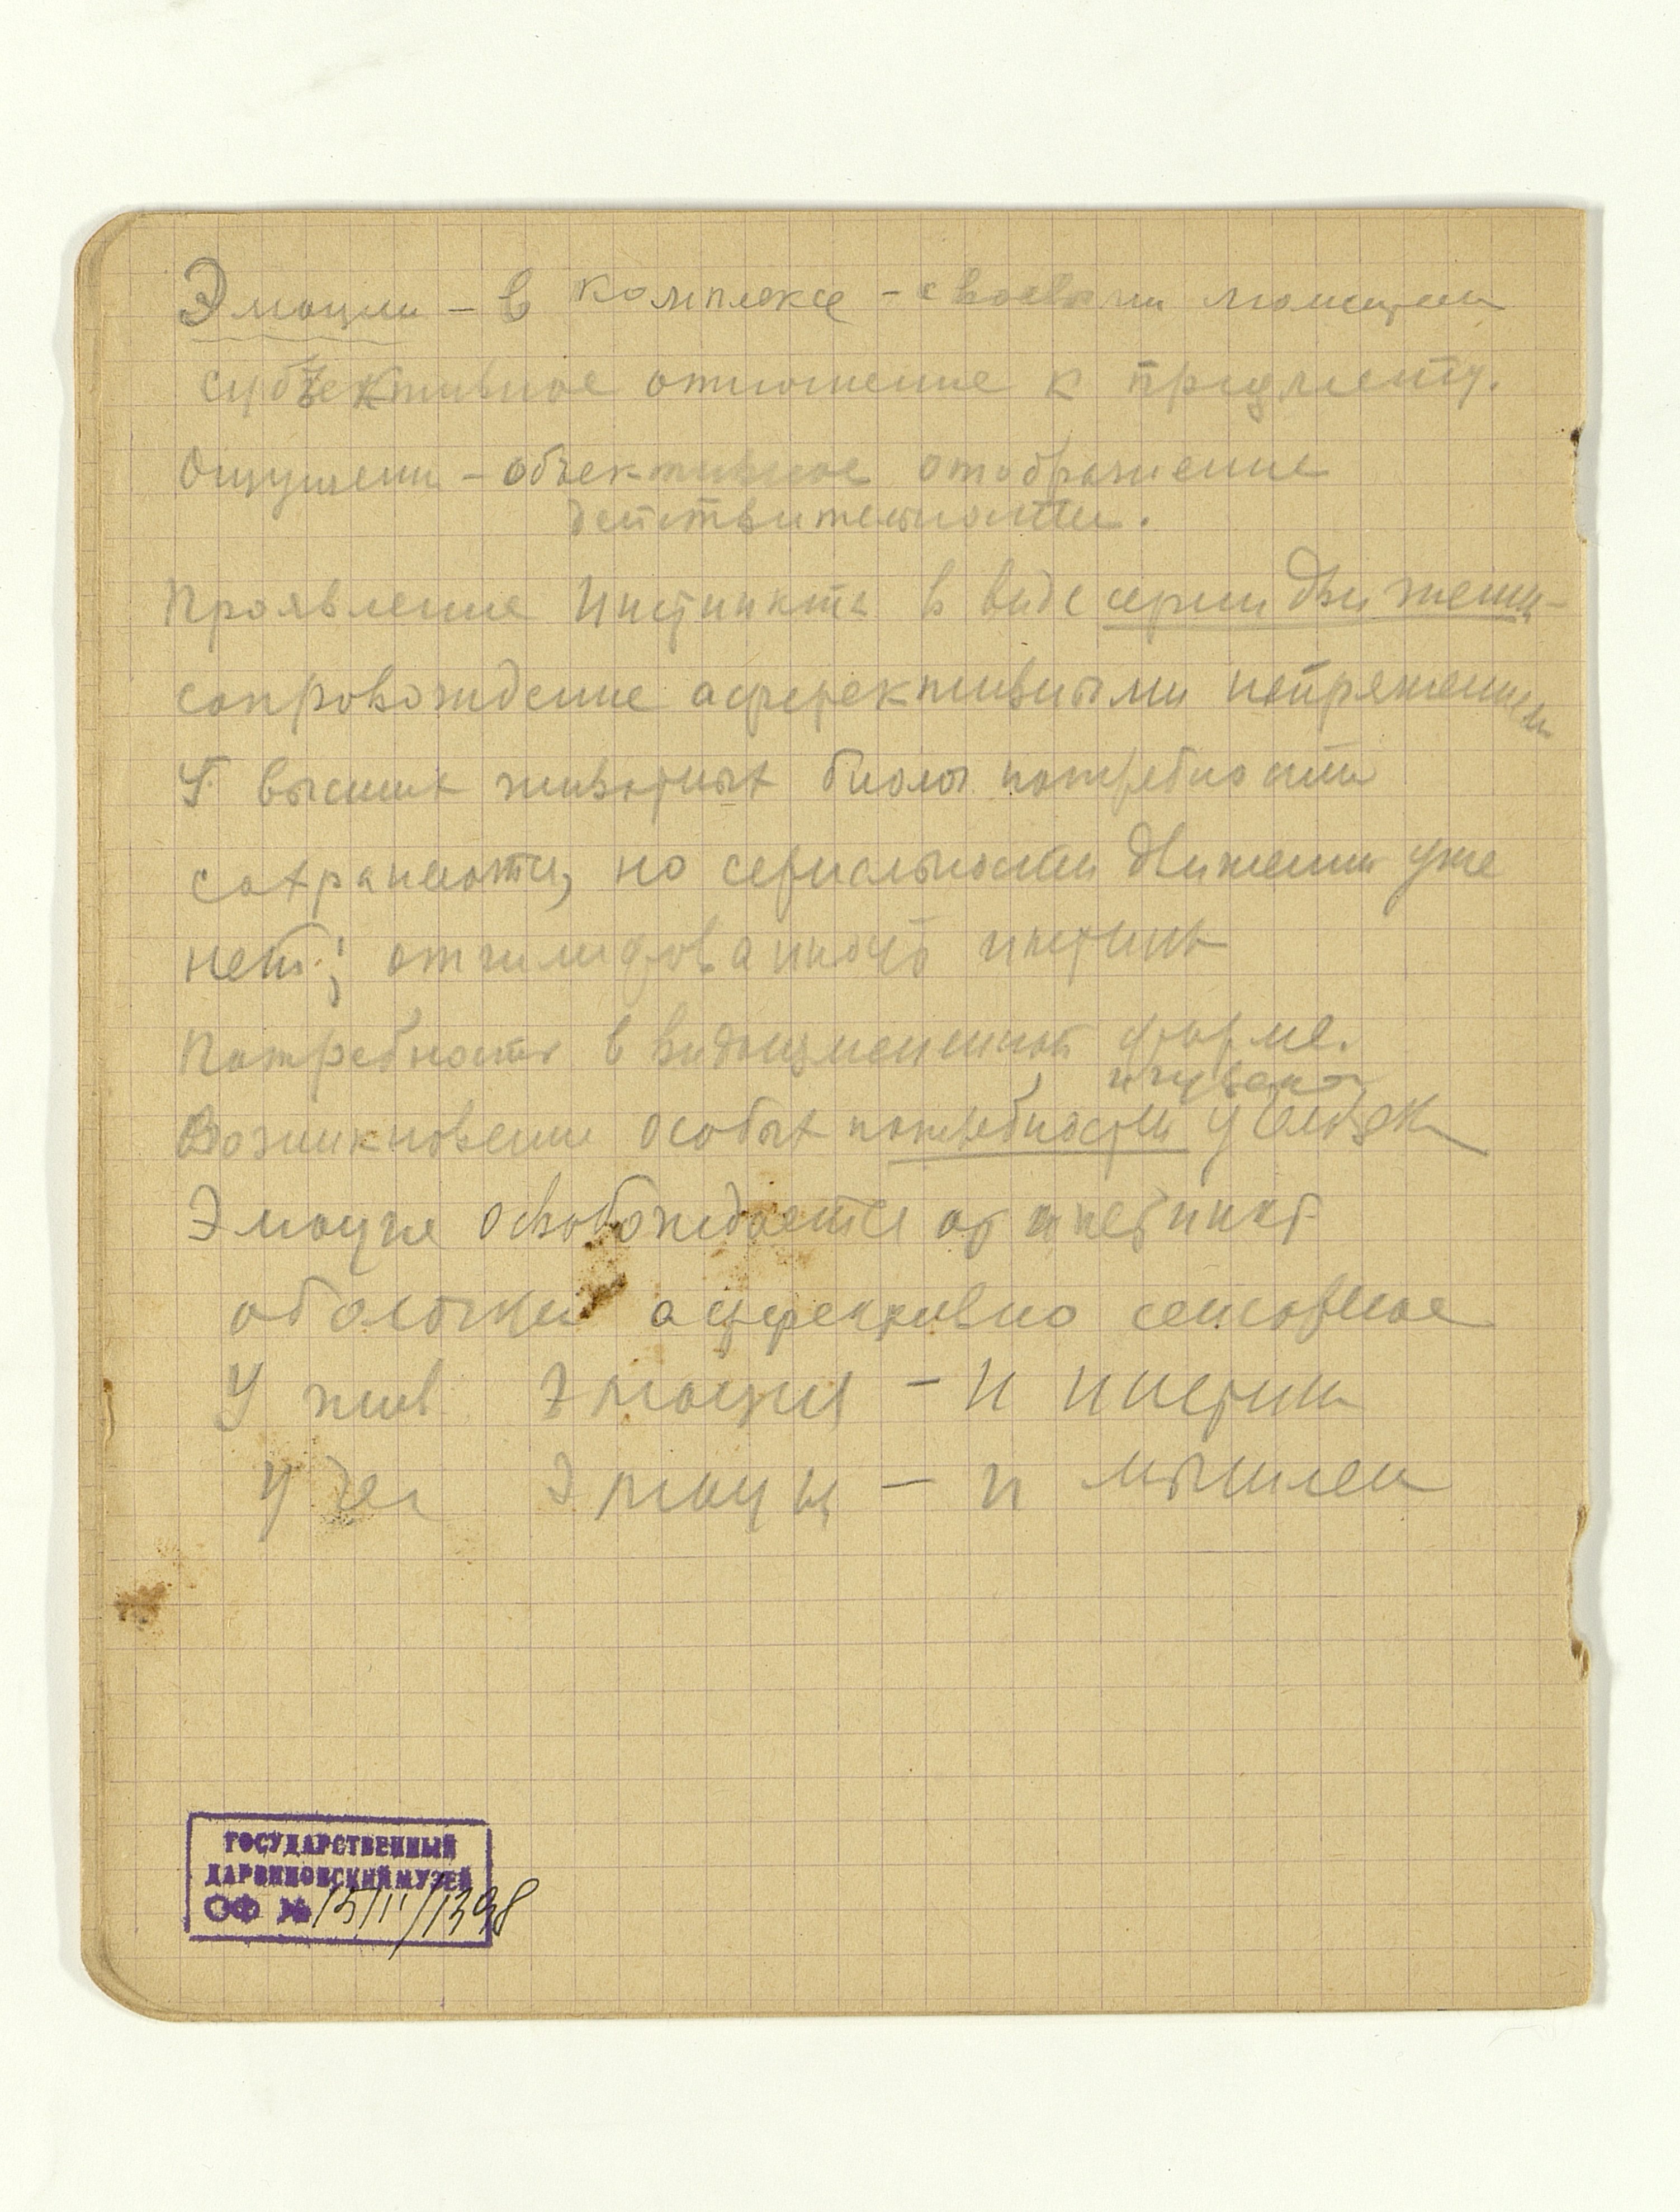 Эмоции – в комплексе – с волевыми моментами
субъективное отношение к предмету.
Ощущени – объективное отображение
действительности.
Проявление Инстинкта в виде серии движени–
сопровождение аффективными напряжением
У высших животных биолог потребности
сохраняются, но сериальности движении уже
нет;
Потребность в видоизмененной форме.
и чувств
Возникновение особых потребности у человек
Эмоция освобождается от инстинкт
области аффективно сенсорное
У жив Эмоция – и инстин
У чел Эмоции – и мышлен
ГОСУДАРСТВЕННЫЙ
ДАРВИНОВСКИЙ МУЗЕЙ
ОФ № 15111/1398